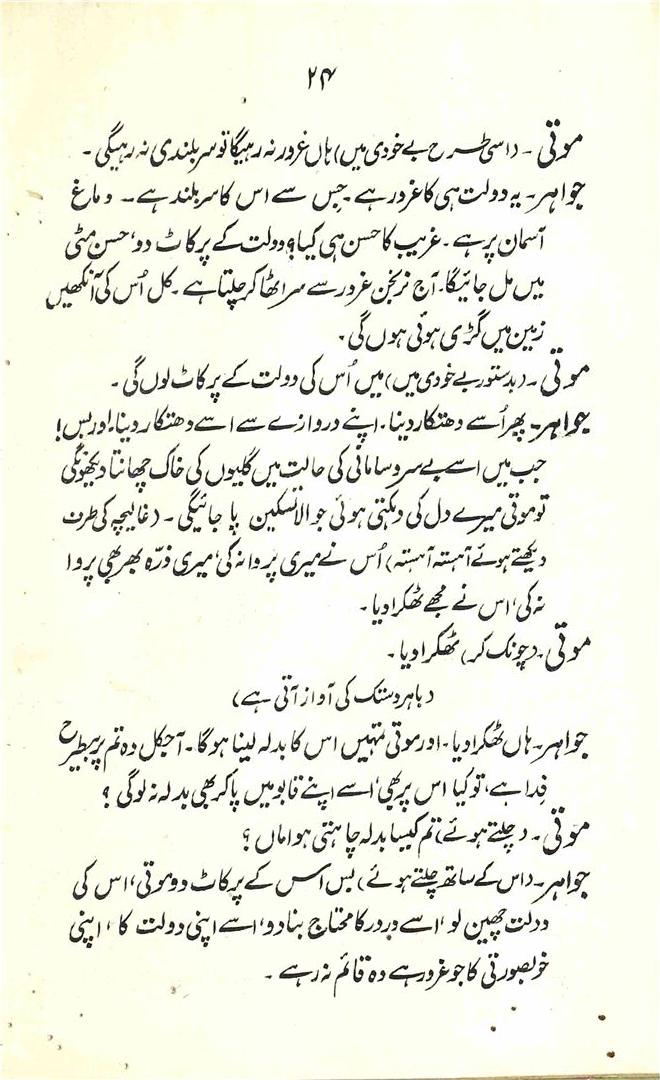 ۲۴
موتی۔ (اسی طرح بے خودی میں) ہاں غرور نہ رہیگا تو سر بلندی نہ رہیگی۔
جواہر۔ یہ دولت ہی کا غرور ہے۔ جس سے اس کا سر بلند ہے۔ دماغ
آسمان پر ہے۔ غریب کا حسن ہی کیا؟ دولت کے پر کاٹ دو، حسن مٹی
میں مل جائیگا۔ آج نرنجن غرور سے سر اٹھا کر چلتا ہے۔ کل اُس کی آنکھیں
زمین میں گڑی ہوئی ہوں گی۔
موتی۔ (بدستور بے خودی میں) میں اُس کی دولت کے پر کاٹ لوں گی۔
جواہر۔ پھر اُسے دھتکار دینا۔ اپنے دروازے سے اسے دھتکار دینا۔ اور بس!
جب میں اسے بے سروسامانی کی حالت میں گلیوں کی خاک چھانتا دیکھونگی
تو موتی میرے دل کی دہکتی ہوئی جوالا تسکین پا جائیگی۔ (غالیچہ کی طرف
دیکھتے ہوئے آہستہ آہستہ) اُس نے میری پروا نہ کی، میری ذرّہ بھر بھی پروا
نہ کی، اس نے مجھے ٹھکرا دیا۔
موتی۔ (چونک کر) ٹھکرا دیا۔
(باہر دستک کی آواز آتی ہے)
جواہر۔ ہاں ٹھکرا دیا۔ اور موتی تمہیں اس کا بدلہ لینا ہوگا۔ آجکل وہ تم پر بطرح
فِدا ہے، تو کیا اس پر بھی، اسے اپنے قابو میں پا کر بھی بدلہ نہ لوگی؟
موتی۔ (چلتے ہوئے) تم کیسا بدلہ چاہتی ہو اماں؟
جواہر۔ (اس کے ساتھ چلتے ہوئے) بس اس کے پر کاٹ دو موتی، اس کی
دولت چھین لو، اسے دردر کا محتاج بنا دو، اسے اپنی دولت کا، اپنی
خوبصورتی کا جو غرور ہے وہ قائم نہ رہے۔